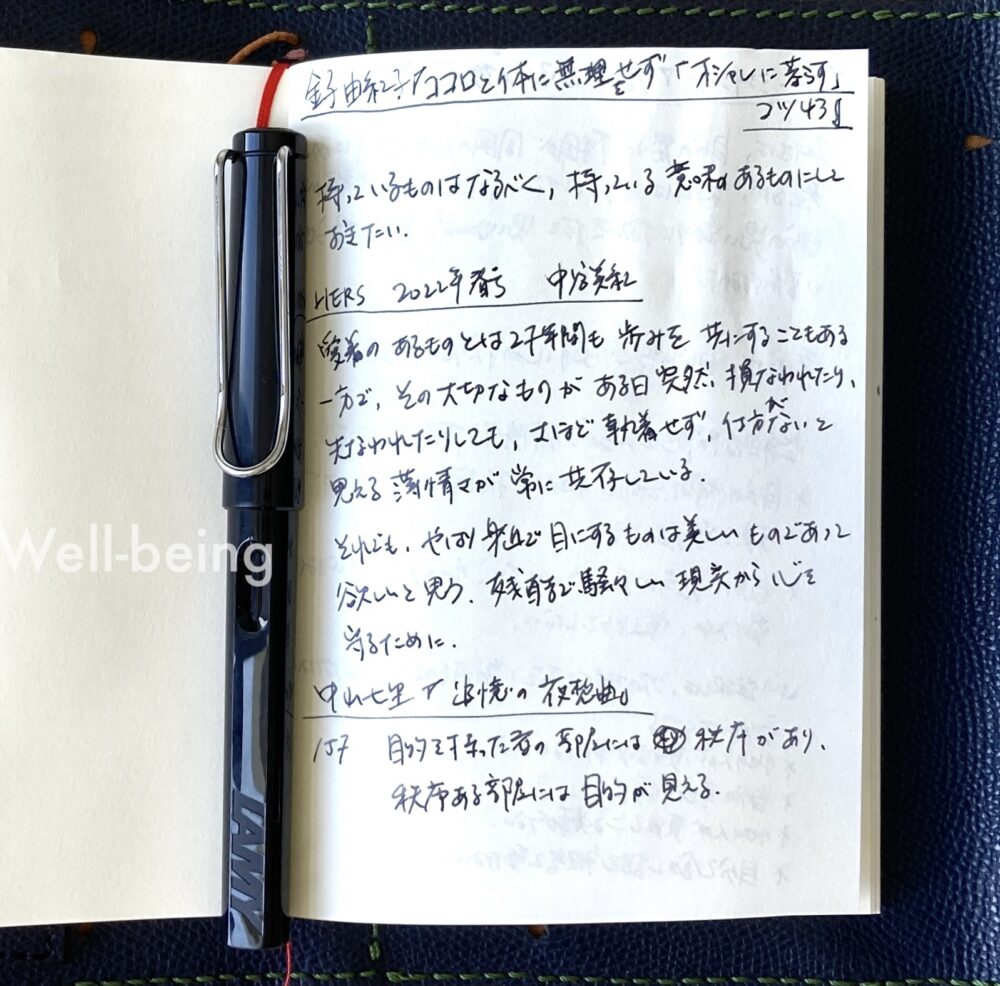 金子由紀子「ココロと体に無理をせず「オシャレに暮らす」
コツ43』
持っているものはなるべく、持っている意味のあるものにして
おきたい.
HERS 2022年春号 中谷美紀
愛着のあるものとは27年間も歩みを共にすることもある
一方で、その大切なものがある日突然、損なわれたり、
失なわれたりしても、さほど執着せず、仕方がないと
思える薄情さが常に共存している.
それでも、やはり身近で目にするものは美しいものであって
欲しいと思う、残酷で騒々しい現実から心を
守るために.
中山七里『追憶の夜想曲』
157 目的を持った者の部屋には秩序があり、
秩序ある部屋には目的が見える.
Well-being
LAMY